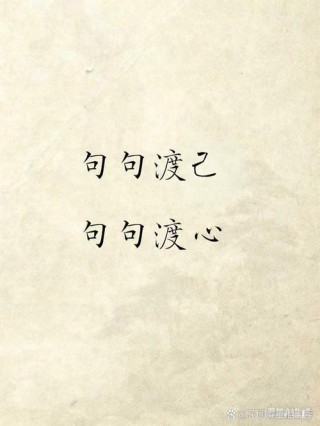 句句渡己
句句渡心